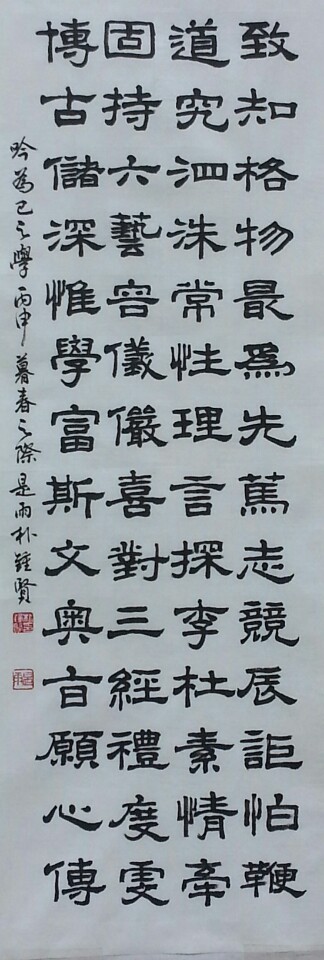 致知格物最爲先篤志競辰詎怕鞭
道究泗洙常性理言探李杜素情牽
固持六藝容儀儼喜對三經禮度虔
博古儲深惟學富斯文奧旨願心傳
吟爲己之學 丙申暮春之際 是雨朴鍾賢